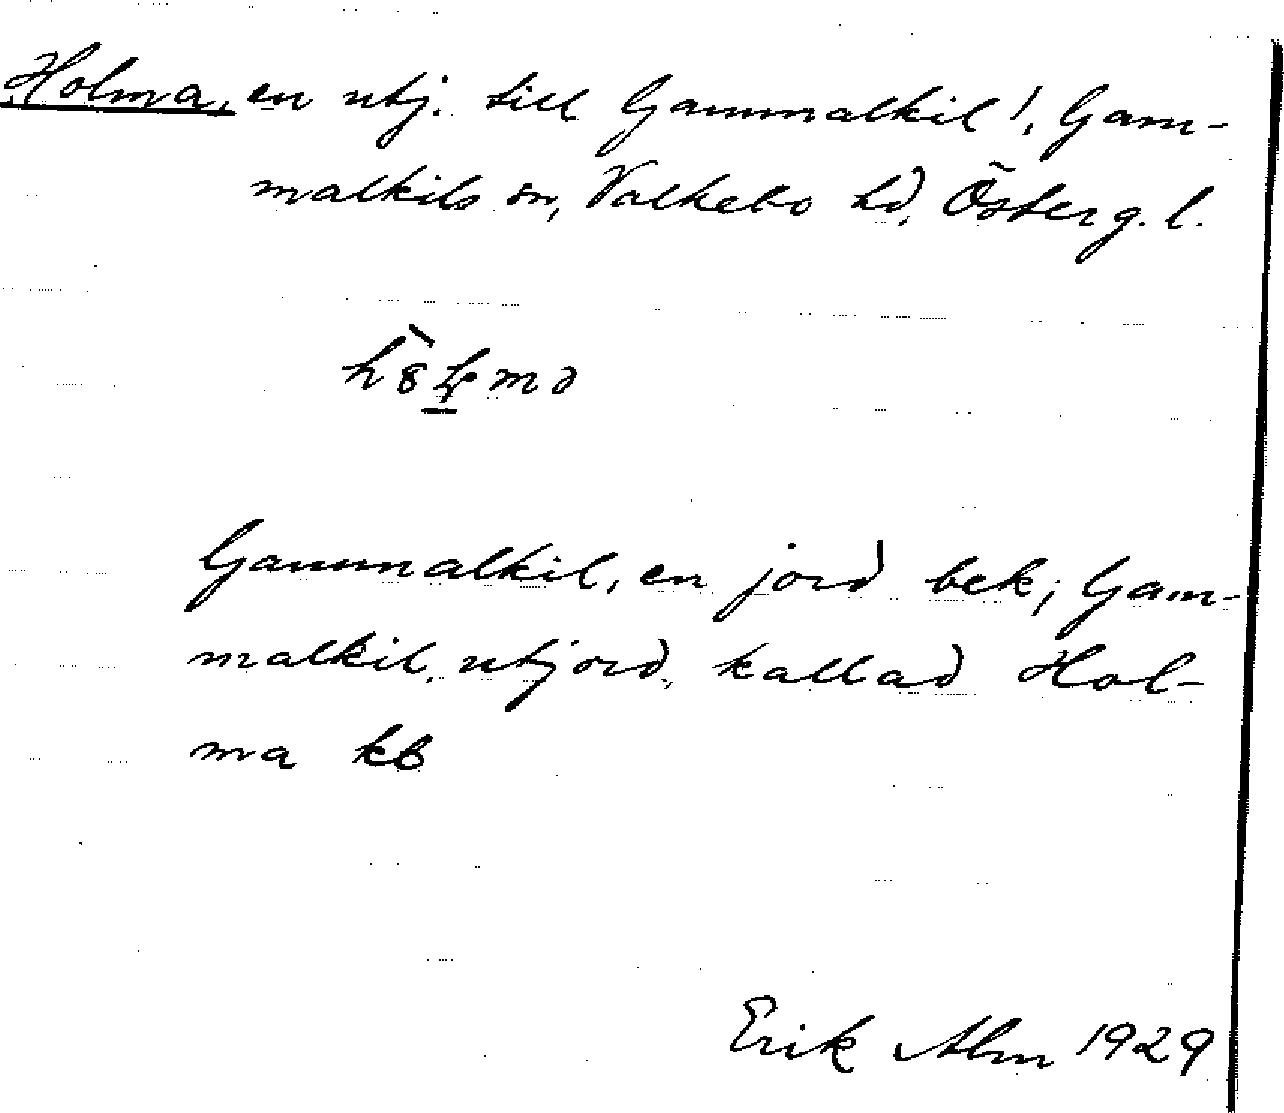 Holma, en utj. till Gammalkil!, Gam-
malkils sn, Valkebo hd, Österg. l.
Gammalkil, en jord bek; Gam-
malkil, utjord, kallad Hol-
ma kb
Erik Alm 1929